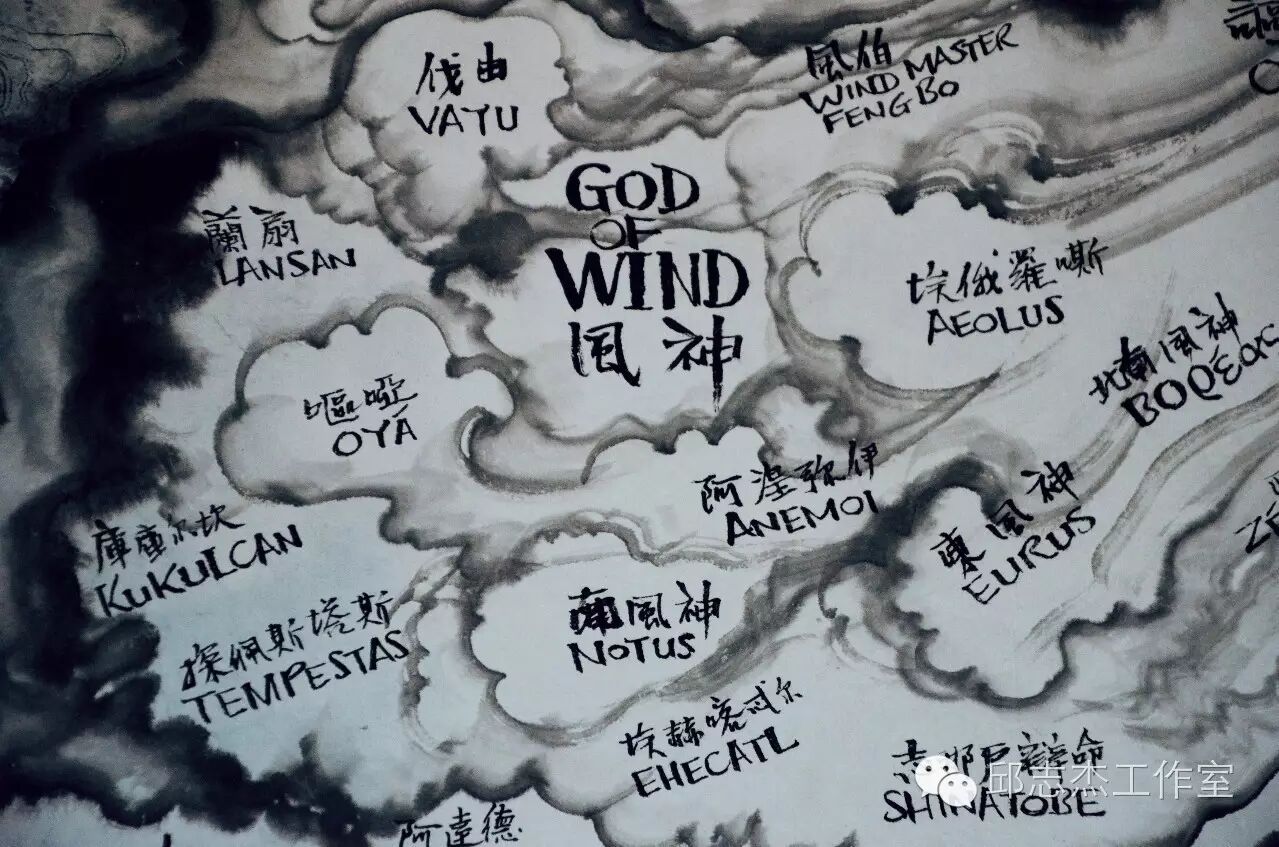 伐由
VAYU
風伯
WIND MASTER
FENG BO
GOD
OF
WIND
風神
蘭扇
LANSAN
埃俄羅嘶
AEOLUS
風神
BOREAS
嘔啞
OYÁ
阿湼弥伊
ANEMOI
東風神
EURUS
庫庫尔坎
KUKULCAN
南風神
NOTUS
佩斯塔斯
TEMPESTAS
埃赫喀忒尔
EHECATL
志那戸辯命
SHINATOBE
阿達德
邱志杰工作室